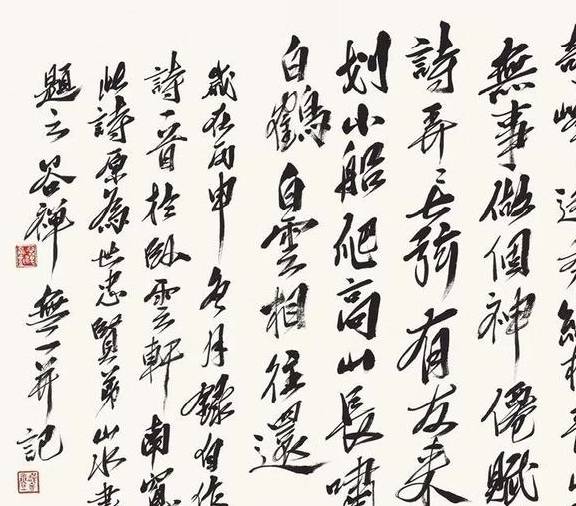 無事做個神僊賦
詩弄有友来
划小船爬高山長嘯
白鶴白雲相往還
歲在丙申冬月錄自作
詩一首於卧雲軒南窗
此詩原為世忠賢弟山水畫
題之谷禅無一并記